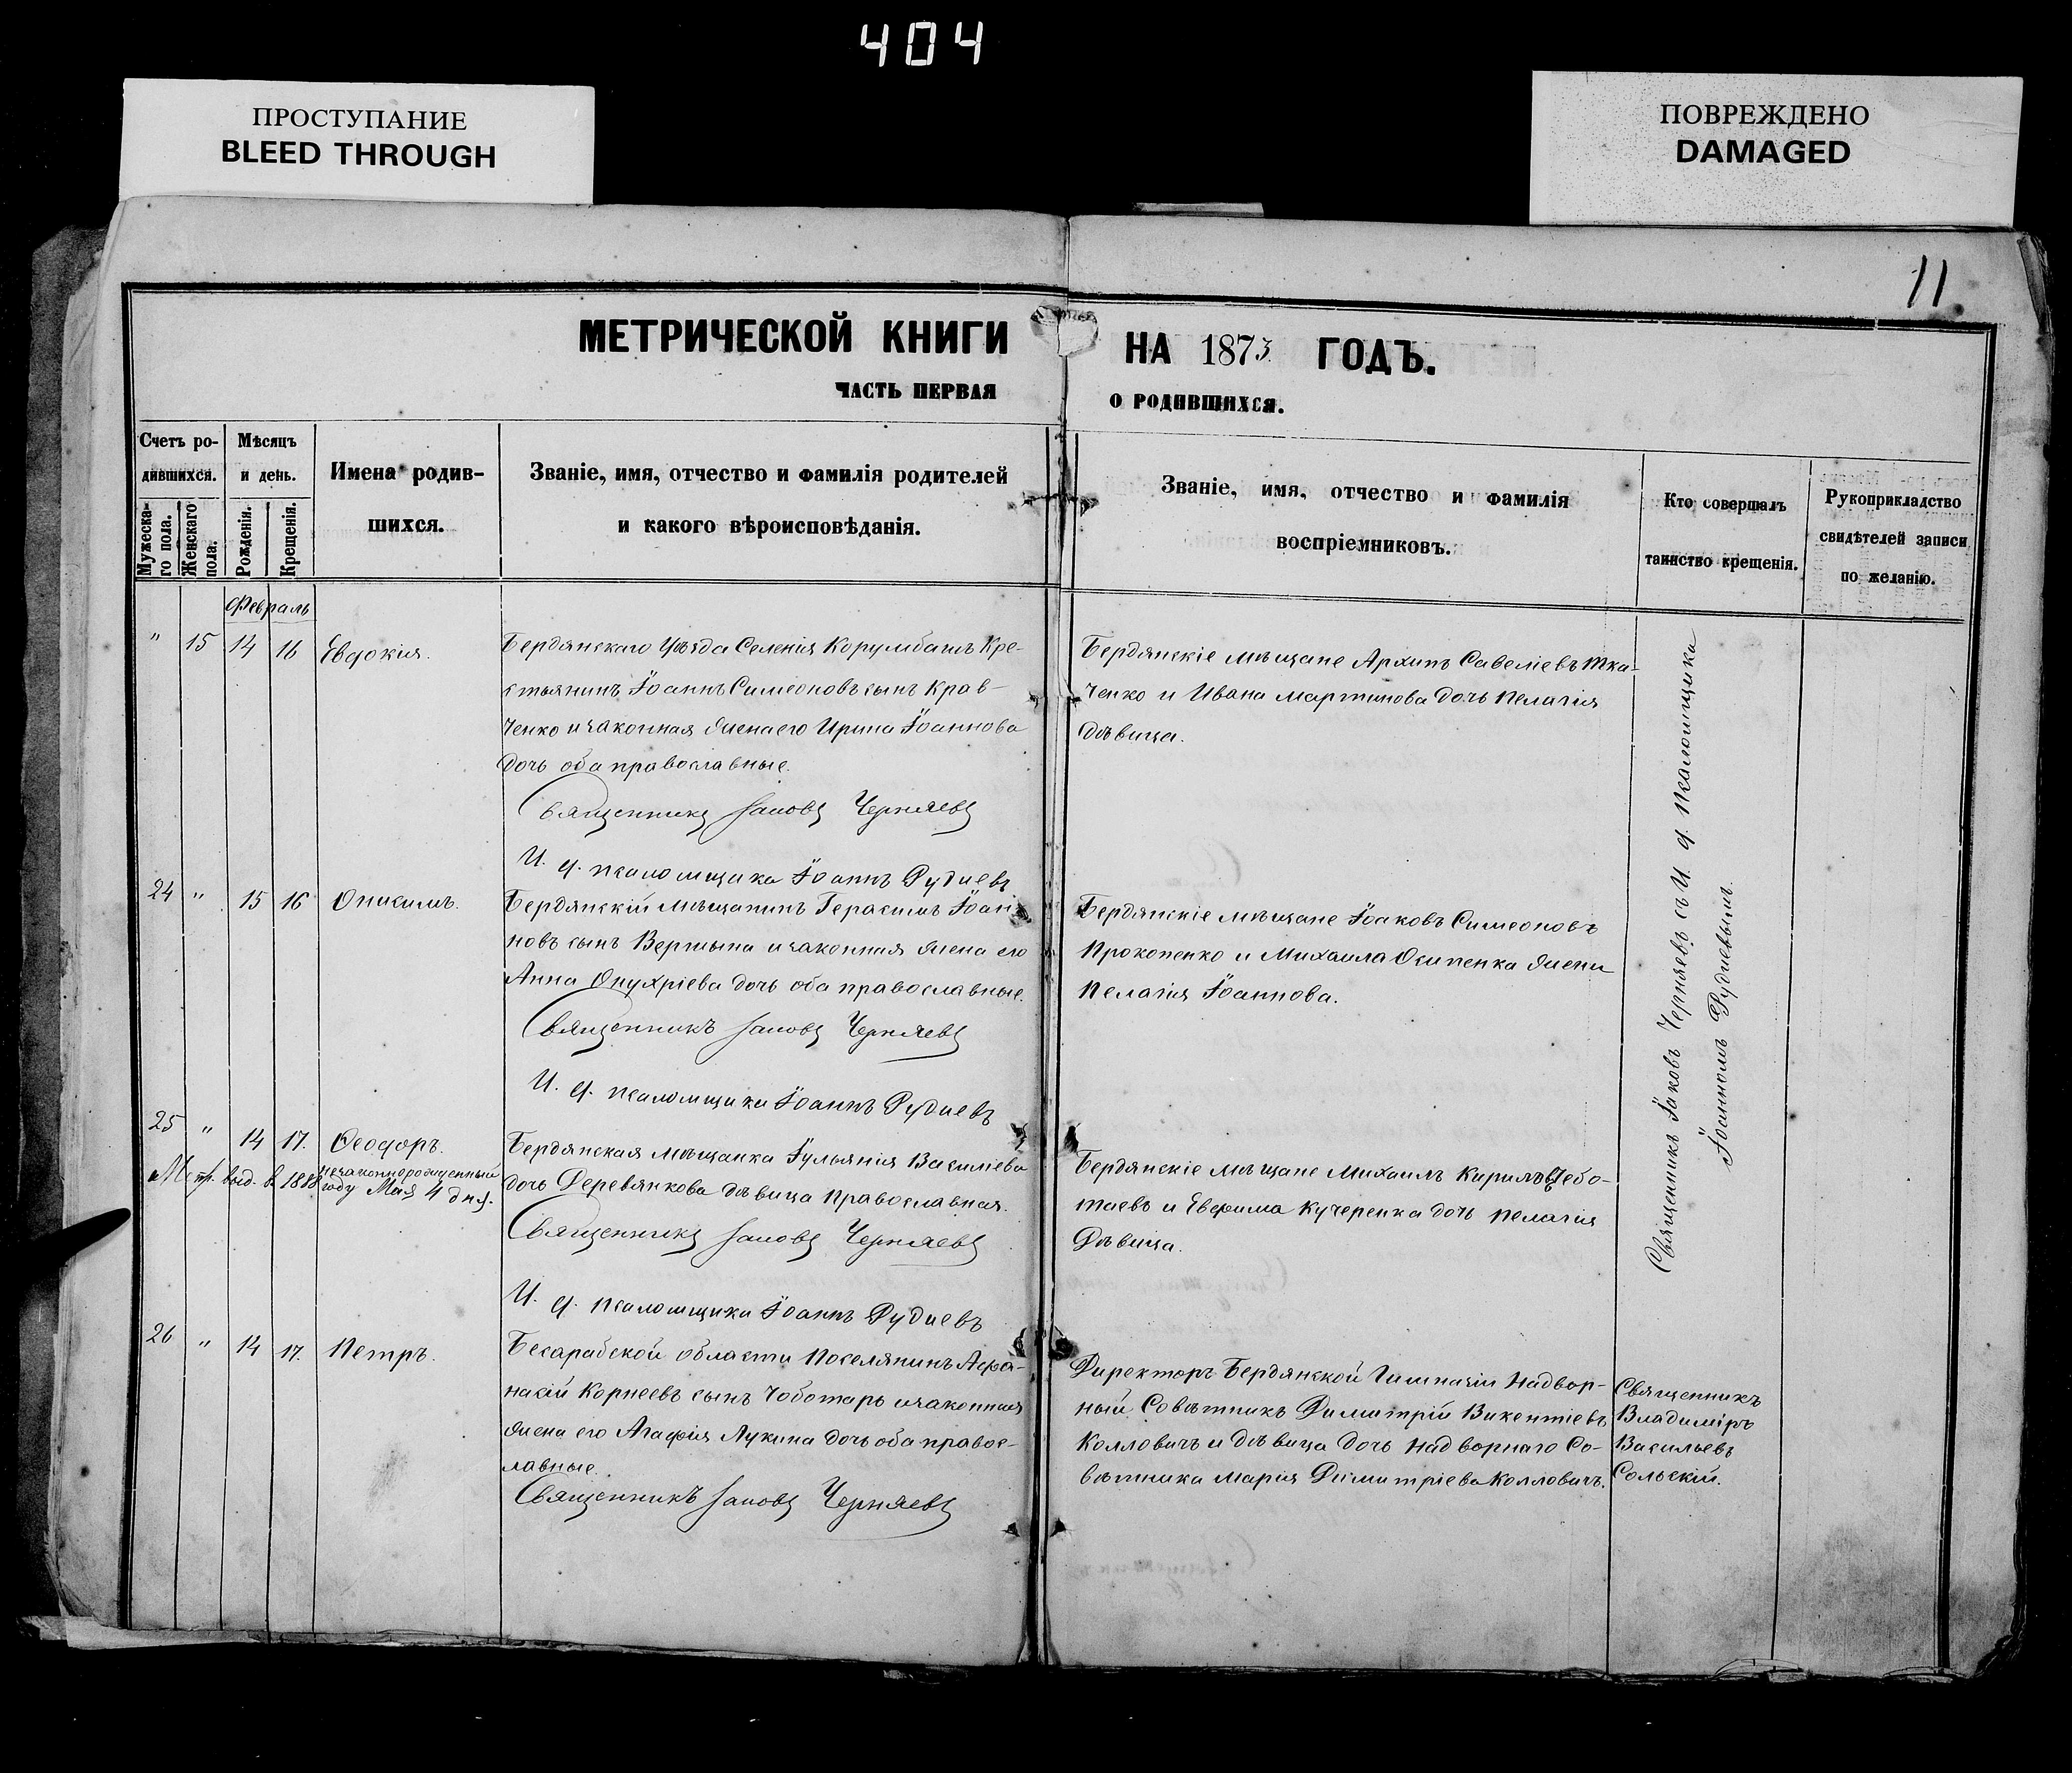 404
ПРОСТУПАНИЕ
BLEED THROUGH
ПОВРЕЖДЕНО
DAMAGED
11
МЕТРИЧЕСКОЙ КНИГИ НА 1873 ГОДЪ.
ЧАСТЬ ПЕРВАЯ О РОДИВШИХСЯ.
Счетъ ро-
дившихся.
Мужеска-
го пола.
Женскаго
пола.
Мѣсяцъ
и день.
Рожденія.
Крещенія.
Имена родив-
шихся.
Званіе, имя, отчество и фамилія родителей
и какого вѣроисповѣданія.
Званіе, имя, отчество и фамилія
воспріемниковъ.
Кто совершалъ
таинство крещенія.
Рукоприкладство
свидѣтелей записи
по желанію.
Февраль
" 15 14 16 Евдокія.
Бердянскаго Уѣзда Селенія Корумбашъ Кре-
стьянинъ Іоаннъ Симеоновъ сынъ Крав-
ченко и законная жена его Ирина Іоаннова
дочь оба православные.
Священникъ Іаковъ Черняевъ
И. д. псаломщика Іоаннъ Рудиевъ
Бердянскіе мѣщане Архипъ Савеліевъ Тка-
ченко и Ивана Мартинова дочь Пелагія
дѣвица.
24 " 15 16 Онисимъ.
Бердянскій мѣщанинъ Герасимъ Іоан-
новъ сынъ Вершына и законная жена его
Анна Онухріева дочь оба православные.
Священникъ Іаковъ Черняевъ
И. д. псаломщика Іоаннъ Рудиевъ
Бердянскіе мѣщане Іоаковъ Симеоновъ
Прокопенко и Михаила Осипенка жена
Пелагія Іоаннова.
25 " 14 17. Ѳеодоръ.
незаконнорожденный
Метр. выд. в 1888 году Мая 4 дня.
Бердянская мѣщанка Іульянія Василіева
дочь Деревянкова дѣвица православная.
Священникъ Іаковъ Черняевъ
И. д. псаломщика Іоаннъ Рудиевъ
Бердянскіе мѣщане Михаилъ Кириловъ Чебо-
таевъ и Евфима Кучеренка дочь Пелагія
Дѣвица.
26 " 14 17. Петръ.
Бесарабской области поселянинъ Аѳа-
насій Корнеевъ сынъ Чоботарь и законная
жена его Агафія Лукина дочь оба правос-
лавные.
Священникъ Іаковъ Черняевъ
Директоръ Бердянской Гимназіи Надвор-
ный Совѣтникъ Димитрій Викентіевъ
Колловичъ и дѣвица дочь Надворнаго Со-
вѣтника Марія Димитріева Колловичъ.
Священникъ Іаковъ Черняевъ съ И. д. Псаломщика
Іоанномъ Рудиевымъ.
Священникъ
Владиміръ
Васильевъ
Сольскій.